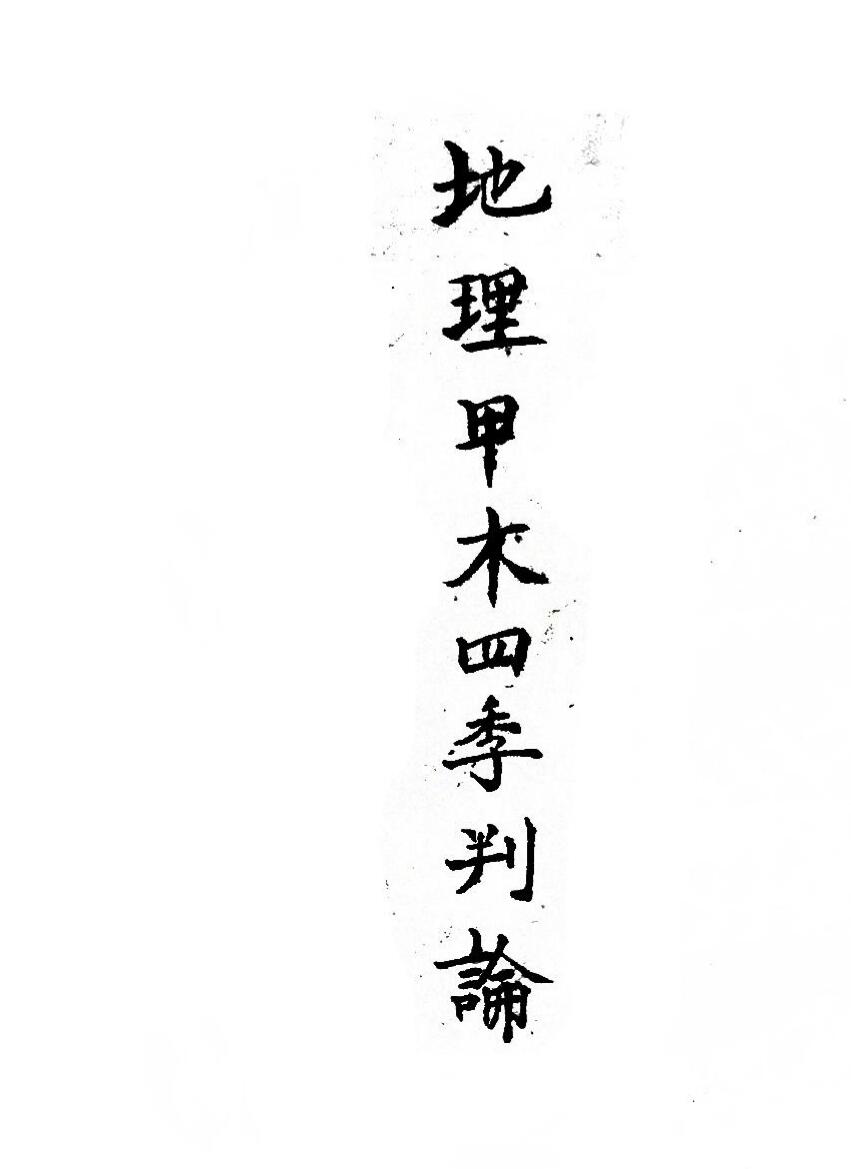 地理甲木四季判論